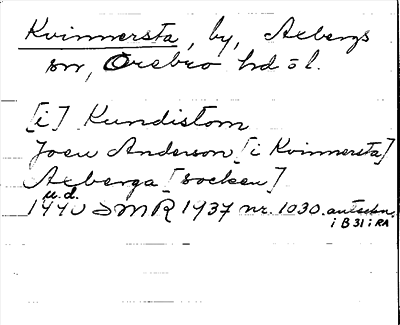 Kvinnersta, by, Axbergs
sn, Örebro hd ö l.
[i] Kundistom
Joen Anderson [i Kvinnersta]
Axberga [socken]
u.d.
1440 SMR 1937 nr. 1030. anteckn.
i B 31 i RA